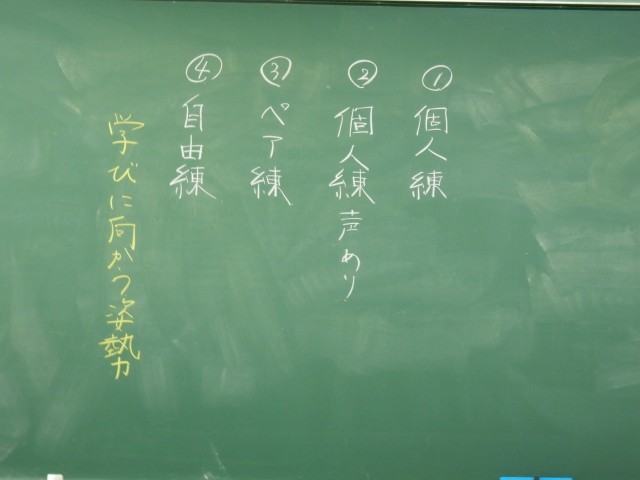 ①個人練
②個人練声あり
③ペア練
④自由練
学びに向かう姿勢